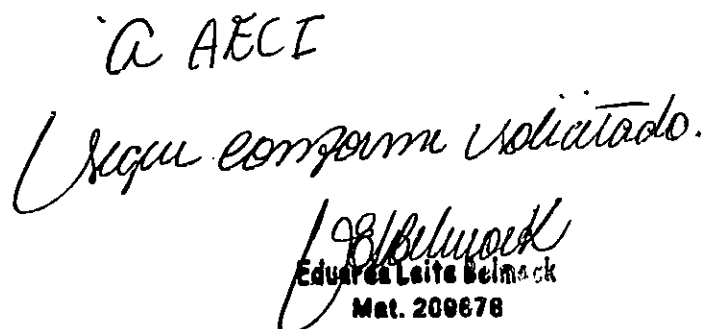 À AECI
Segue conforme solicitado.
EBelmock
Eduarda Leite Belmock
Mat. 209678